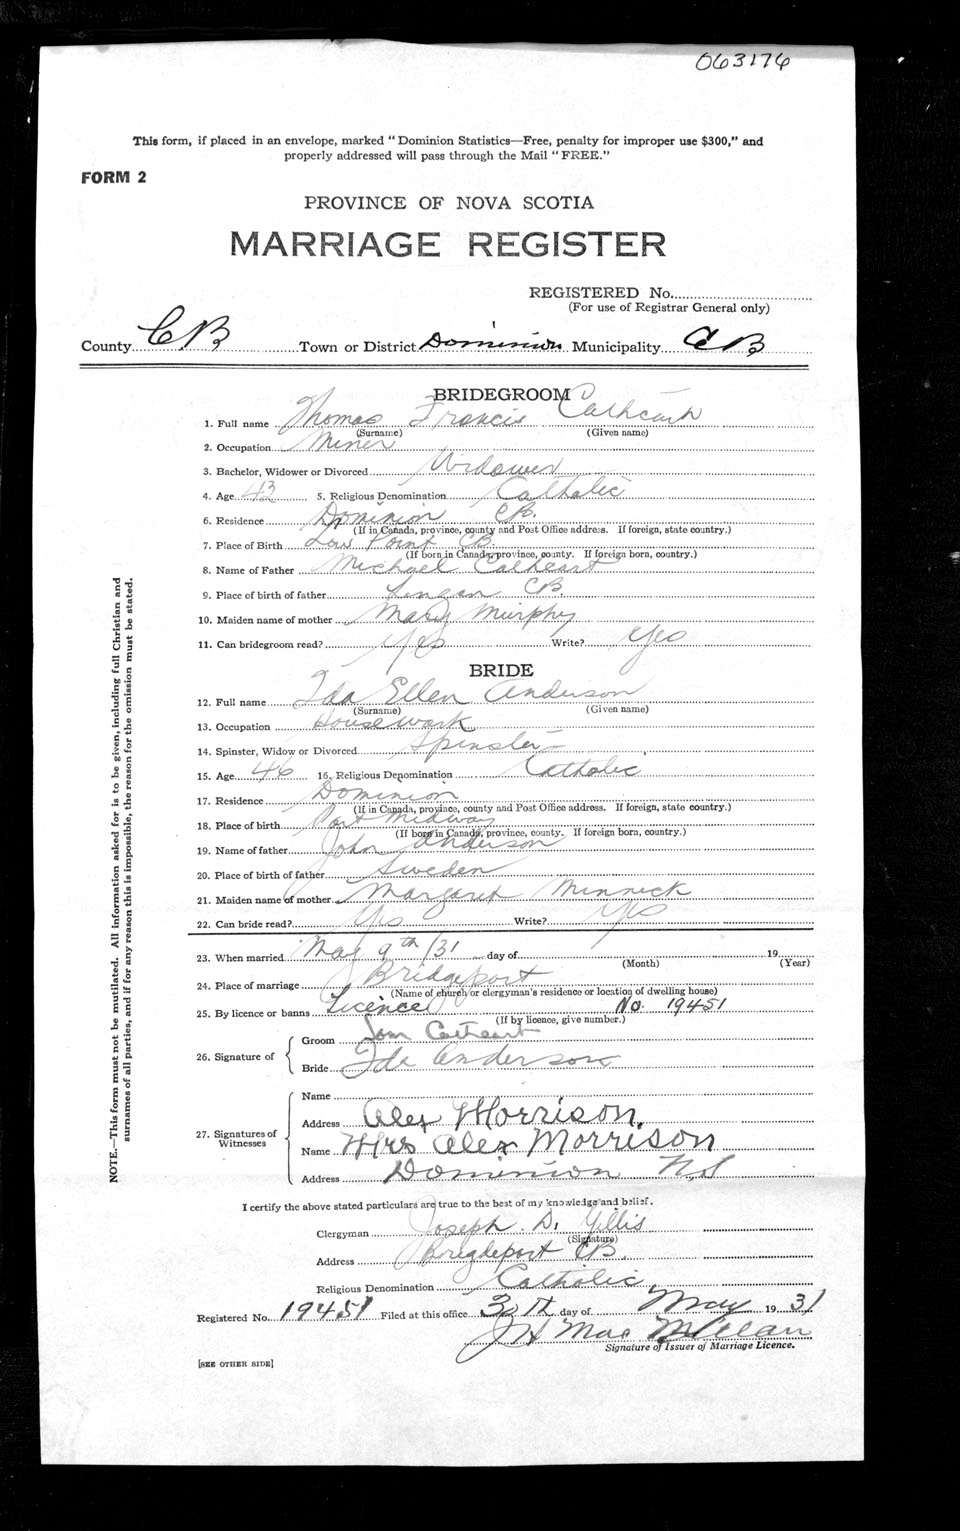 063176
This form, if placed in an envelope, marked "Dominion Statistics—Free, penalty for improper use $300," and
properly addressed will pass through the Mail "FREE."
FORM 2
PROVINCE OF NOVA SCOTIA
MARRIAGE REGISTER
REGISTERED No.
(For use of Registrar General only)
County CB Town or District Dominion Municipality CB
BRIDEGROOM
1. Full name Thomas Francis Cathcart
(Surname) (Given name)
2. Occupation Miner
3. Bachelor, Widower or Divorced Widower
4. Age 43 5. Religious Denomination Catholic
6. Residence Dominion CB.
(If in Canada, province, county and Post Office address. If foreign, state country.)
7. Place of Birth Low Point CB.
(If born in Canada, province, county. If foreign born, country.)
8. Name of Father Michael Catheart
9. Place of birth of father Lingan CB.
10. Maiden name of mother Mary Murphy
11. Can bridegroom read? Yes Write? Yes
BRIDE
12. Full name Ida Ellen Anderson
(Surname) (Given name)
13. Occupation Housework
14. Spinster, Widow or Divorced Spinster
15. Age 46 16. Religious Denomination Catholic
17. Residence Dominion
(If in Canada, province, county and Post Office address. If foreign, state country.)
18. Place of birth Port Midway
(If born in Canada, province, county. If foreign born, country.)
19. Name of father John Anderson
20. Place of birth of father Sweden
21. Maiden name of mother Margaret Minnick
22. Can bride read? Yes Write? Yes
23. When married May 9th/31 day of 19
(Month) (Year)
24. Place of marriage Bridgeport
(Name of church or clergyman's residence or location of dwelling house)
25. By licence or banns Licence No. 19451
(If by licence, give number.)
26. Signature of
Groom Tom Catheart
Bride Ida Anderson
27. Signatures of Witnesses
Name
Address Alex Morrison.
Name Mrs Alex Morrison
Address Dominion N.S
I certify the above stated particulars are true to the best of my knowledge and belief.
Clergyman Joseph D. Gillis
(Signature)
Address Bregdeport CB.
Religious Denomination Catholic.
Registered No. 19451 Filed at this office 30th day of May 1931
J H MacMillan
Signature of Issuer of Marriage Licence.
[SEE OTHER SIDE]
NOTE.—This form must not be mutilated. All information asked for is to be given, including full Christian and
surnames of all parties, and if for any reason this is impossible, the reason for the omission must be stated.